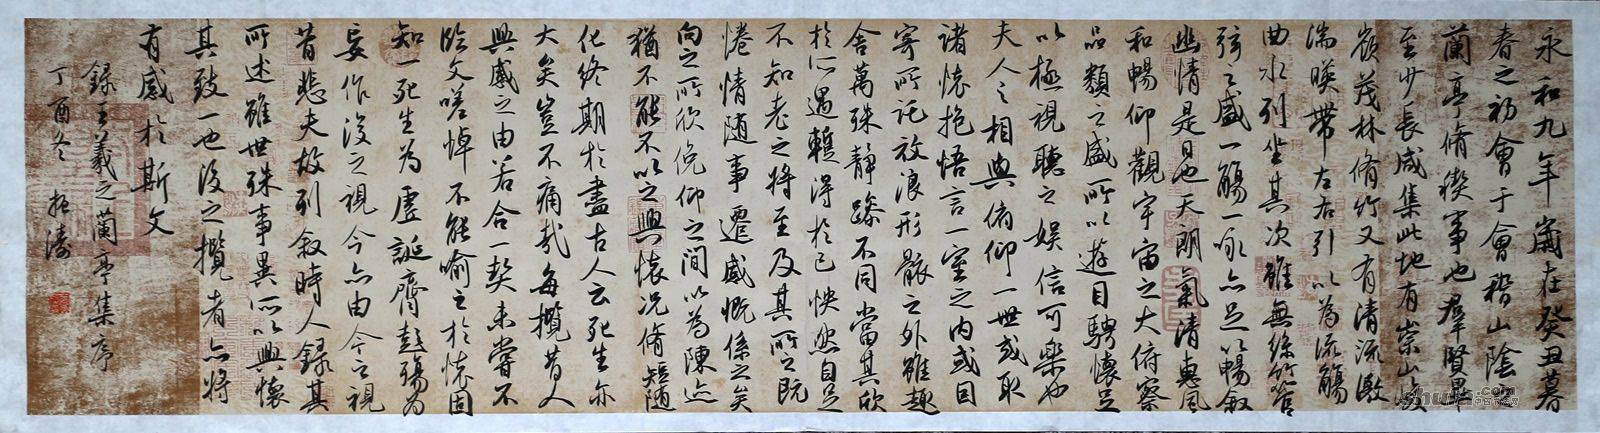 永和九年歲在癸丑暮
春之初會于會稽山陰之
蘭亭脩禊事也群賢畢
至少長咸集此地有崇山峻
嶺茂林脩竹又有清流激
湍暎帶左右引以為流觴
曲水列坐其次雖無絲竹管
弦之盛一觴一詠亦足以暢叙
幽情是日也天朗氣清惠風
和暢仰觀宇宙之大俯察
品類之盛所以遊目騁懷足
以極視聽之娛信可樂也
夫人之相與俯仰一世或取
諸懷抱悟言一室之內或因
寄所託放浪形骸之外雖趣
舍萬殊靜躁不同當其欣
於所遇蹔得於己怏然自足
不知老之將至及其所之既
惓情隨事遷感慨係之矣
向之所欣俛仰之間以為陳迹
猶不能不以之興懷況脩短隨
化終期於盡古人云死生亦
大矣豈不痛哉每攬昔人
興感之由若合一契未嘗不
臨文嗟悼不能喻之於懷固
知一死生為虛誕齊彭殤為
妄作後之視今亦由今之視
昔悲夫故列叙時人錄其
所述雖世殊事異所以興懷
其致一也後之攬者亦將
有感於斯文
錄王羲之蘭亭集序
丁酉冬 振濤